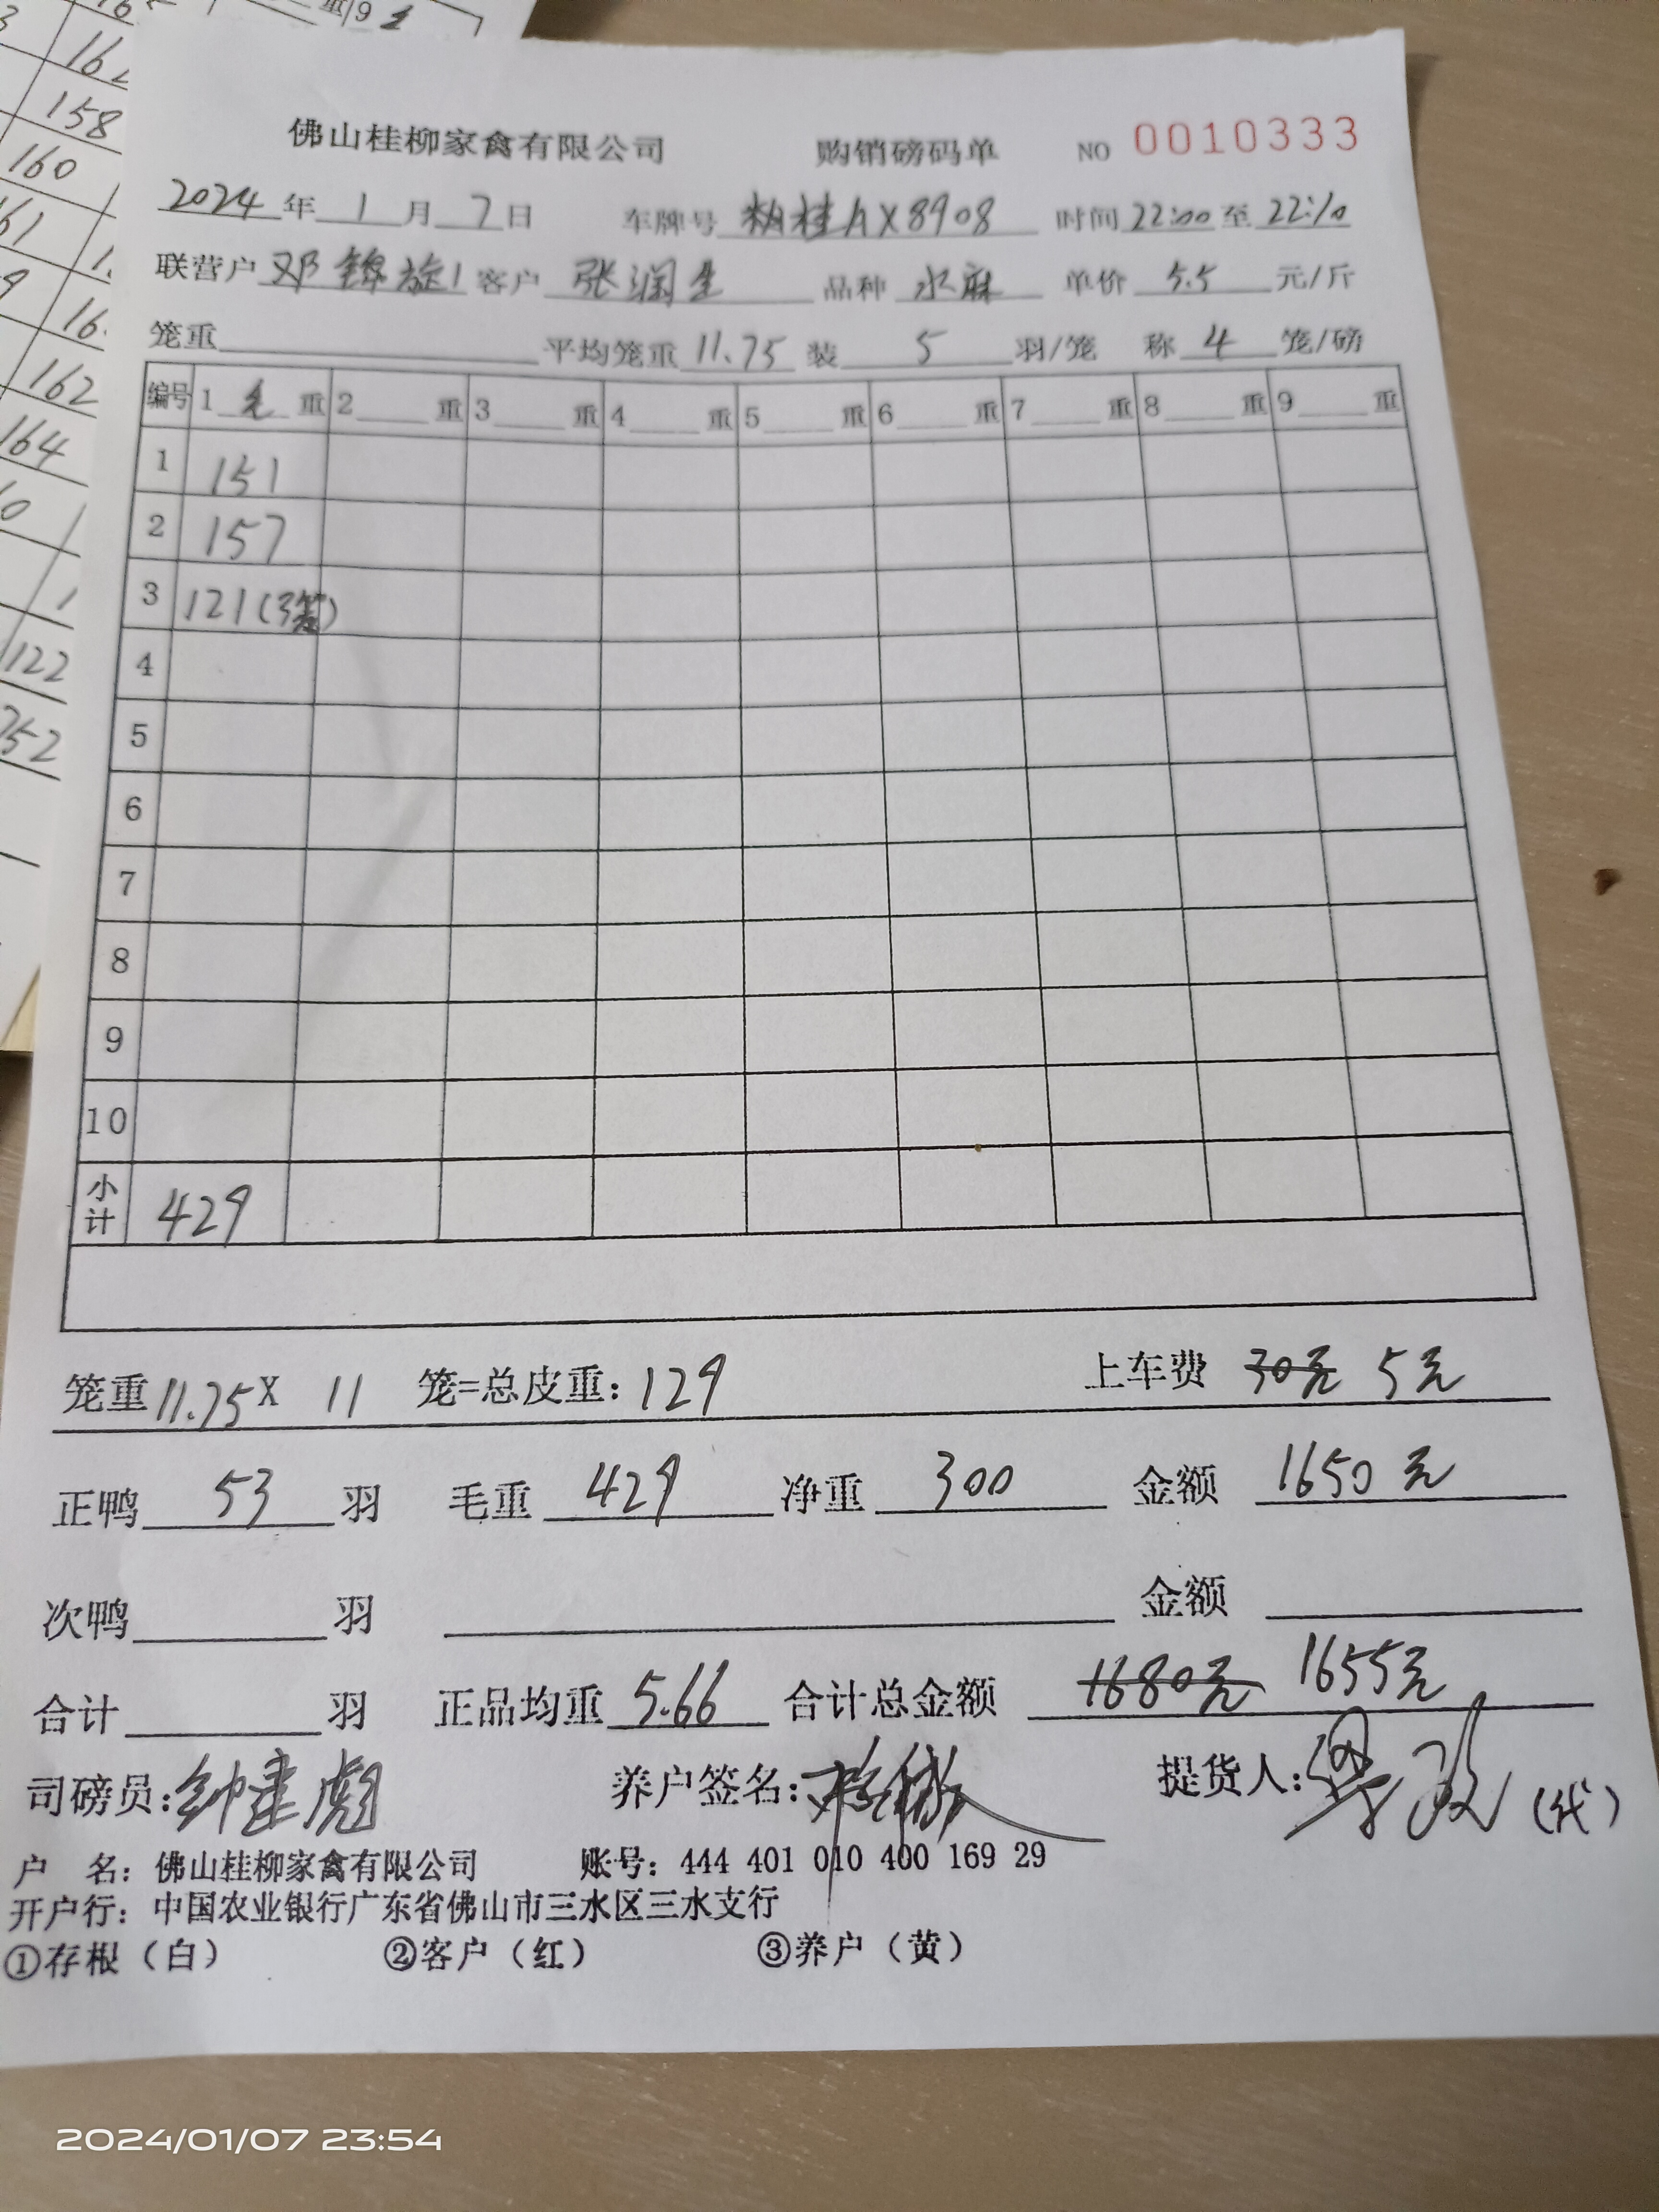 佛山桂柳家禽有限公司 购销磅码单 NO 0010333
2024年1月7日 车牌号 桂AX8908 时间22:00至22:10
联营户 邓锦旋1 客户 张润生 品种 水麻 单价 5.5 元/斤
笼重 平均笼重 11.75 装 5 羽/笼 称 4 笼/磅
编号 1 毛 重 2 重 3 重 4 重 5 重 6 重 7 重 8 重 9 重
1 151
2 157
3 121(3笼)
4
5
6
7
8
9
10
小计 429
笼重 11.75 X 11 笼=总皮重: 129 上车费 30元 5元
正鸭 53 羽 毛重 429 净重 300 金额 1650元
次鸭 羽 金额
合计 羽 正品均重 5.66 合计总金额 1680元 1655元
司磅员: 钟建彪 养户签名: 提货人: (代)
户 名: 佛山桂柳家禽有限公司 账号: 444 401 010 400 169 29
开户行: 中国农业银行广东省佛山市三水区三水支行
①存根（白） ②客户（红） ③养户（黄）
重 9 毛
162
158
160
161
162
164
122
752
2024/01/07 23:54